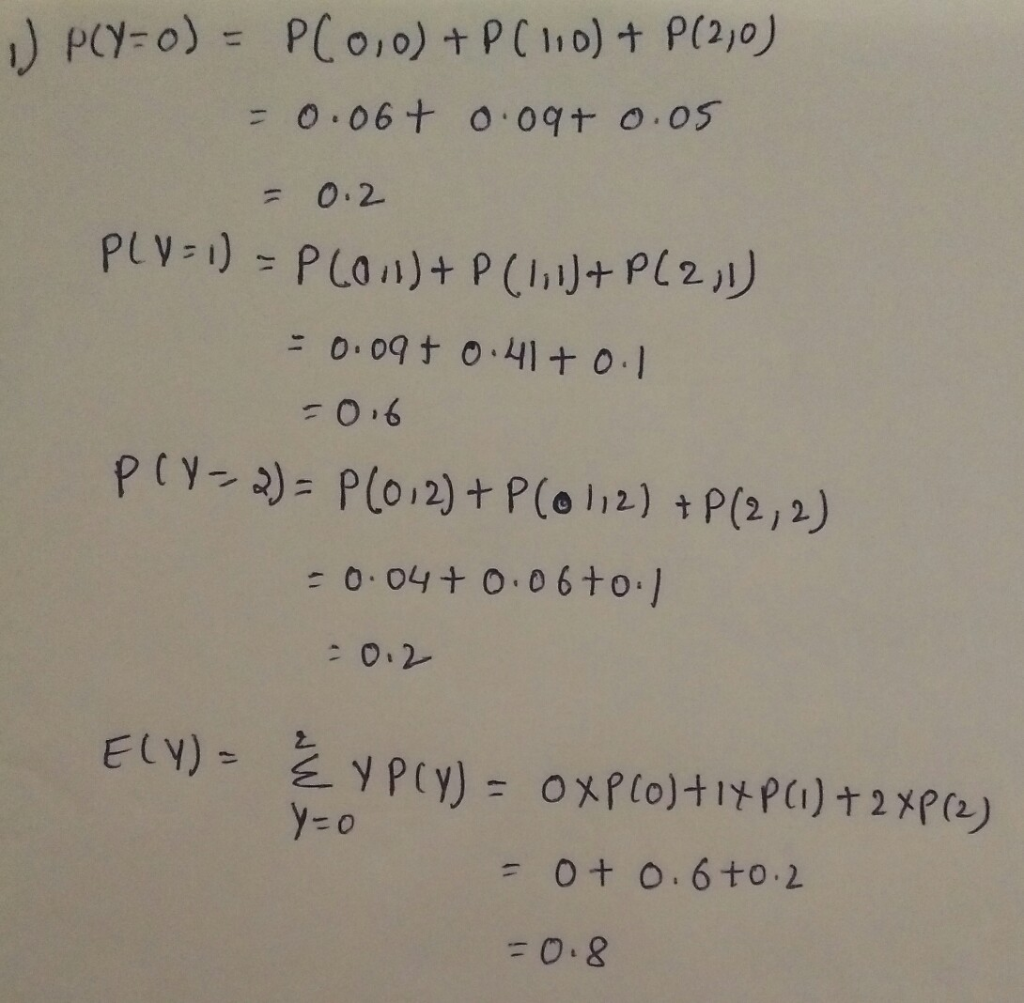 1) P(Y=0) = P(0,0) + P(1,0) + P(2,0)
= 0.06 + 0.09 + 0.05
= 0.2
P(Y=1) = P(0,1) + P(1,1) + P(2,1)
= 0.09 + 0.41 + 0.1
= 0.6
P(Y=2) = P(0,2) + P(1,2) + P(2,2)
= 0.04 + 0.06 + 0.1
= 0.2
E(Y) = 2 Σ Y=0 Y P(Y) = 0×P(0) + 1×P(1) + 2×P(2)
= 0 + 0.6 + 0.2
= 0.8